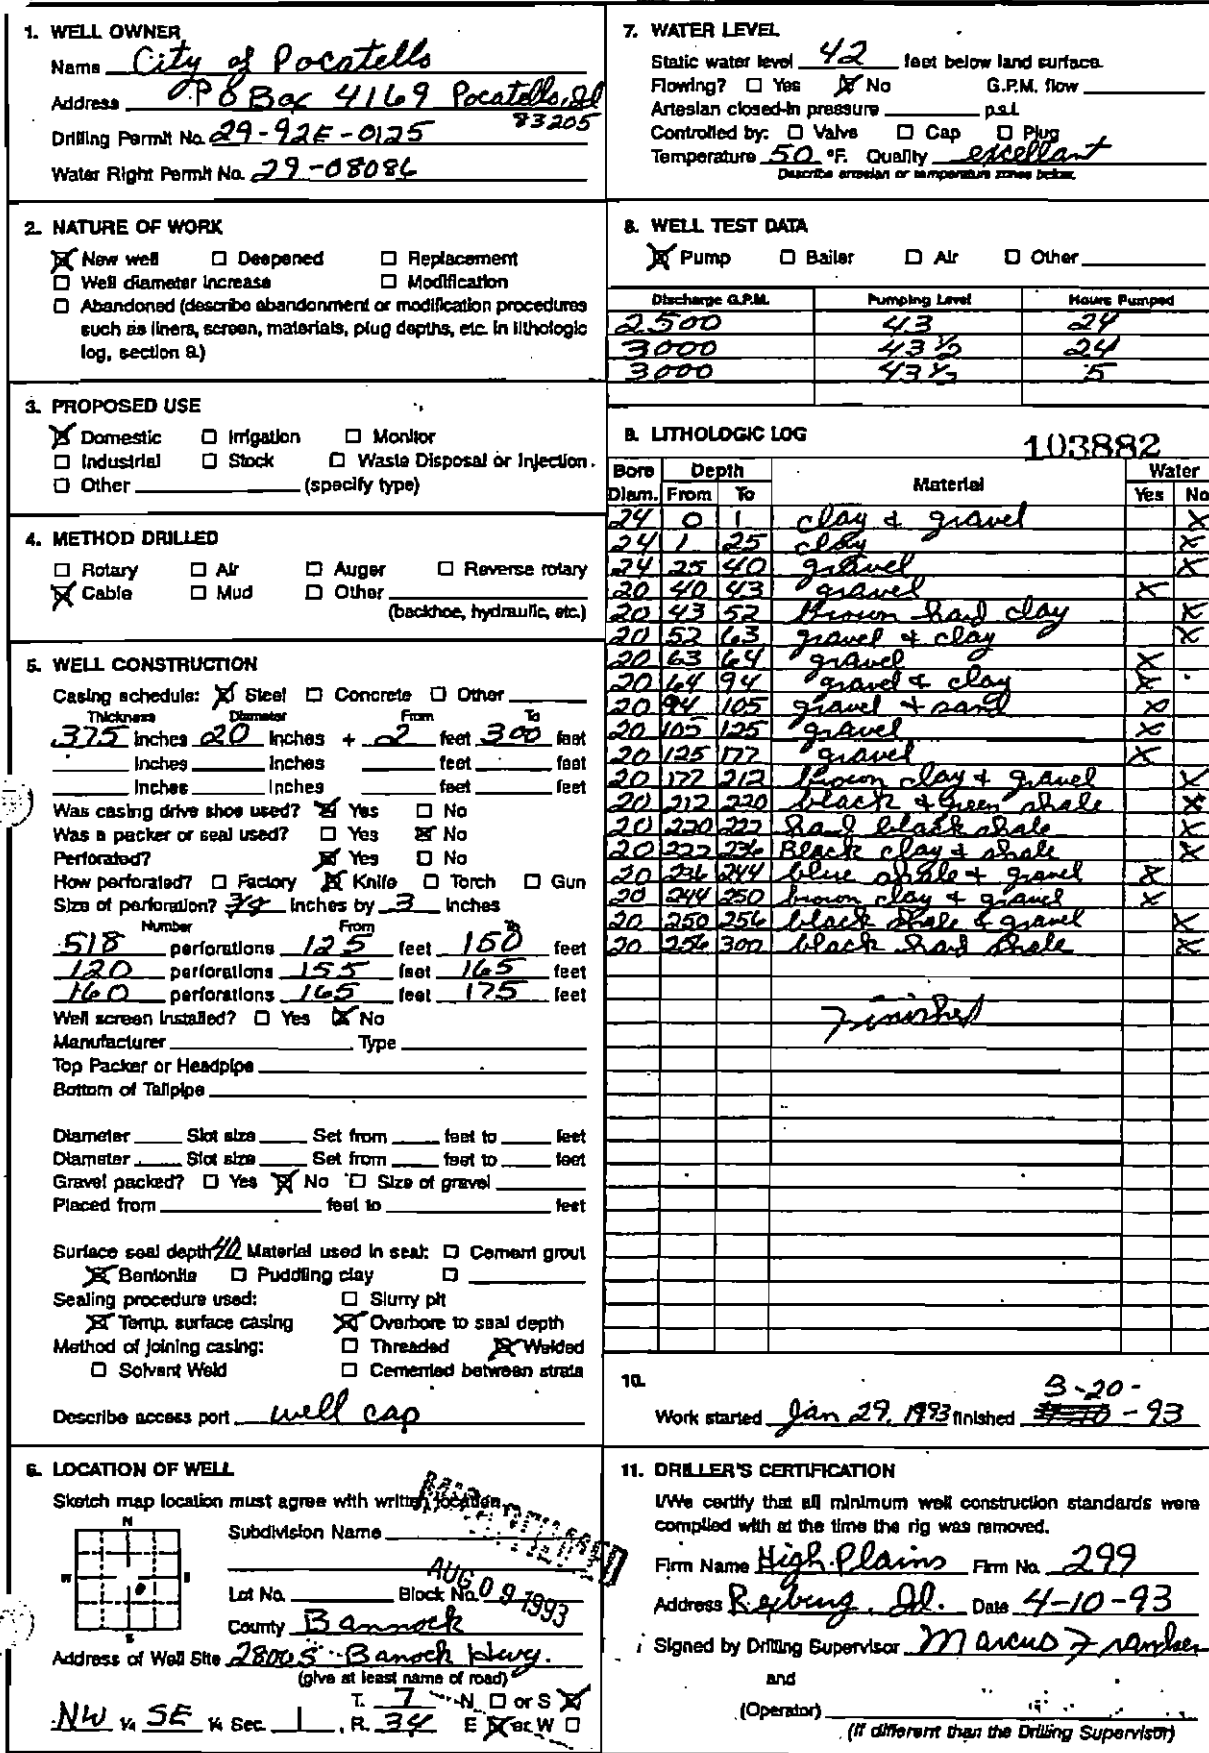 1. WELL OWNER
Name City of Pocatello
Address P O Box 4169 Pocatello, Id
83205
Drilling Permit No. 29-92E-0125
Water Right Permit No. 29-08086
2. NATURE OF WORK
☒ New well ☐ Deepened ☐ Replacement
☐ Well diameter increase ☐ Modification
☐ Abandoned (describe abandonment or modification procedures
such as liners, screen, materials, plug depths, etc. in lithologic
log, section 9.)
3. PROPOSED USE
☒ Domestic ☐ Irrigation ☐ Monitor
☐ Industrial ☐ Stock ☐ Waste Disposal or Injection
☐ Other (specify type)
4. METHOD DRILLED
☐ Rotary ☐ Air ☐ Auger ☐ Reverse rotary
☒ Cable ☐ Mud ☐ Other
(backhoe, hydraulic, etc.)
5. WELL CONSTRUCTION
Casing schedule: ☒ Steel ☐ Concrete ☐ Other
Thickness Diameter From To
.375 inches 20 inches + 2 feet 300 feet
inches inches feet feet
inches inches feet feet
Was casing drive shoe used? ☒ Yes ☐ No
Was a packer or seal used? ☐ Yes ☒ No
Perforated? ☒ Yes ☐ No
How perforated? ☐ Factory ☒ Knife ☐ Torch ☐ Gun
Size of perforation? inches by 3 inches
Number From To
518 perforations 125 feet 150 feet
120 perforations 155 feet 165 feet
160 perforations 165 feet 175 feet
Well screen installed? ☐ Yes ☒ No
Manufacturer Type
Top Packer or Headpipe
Bottom of Tailpipe
Diameter Slot size Set from feet to feet
Diameter Slot size Set from feet to feet
Gravel packed? ☐ Yes ☒ No ☐ Size of gravel
Placed from feet to feet
Surface seal depth 40 Material used in seal: ☐ Cement grout
☒ Bentonite ☐ Puddling clay ☐
Sealing procedure used: ☐ Slurry pit
☒ Temp. surface casing ☒ Overbore to seal depth
Method of joining casing: ☐ Threaded ☒ Welded
☐ Solvent Weld ☐ Cemented between strata
Describe access port well cap
6. LOCATION OF WELL
Sketch map location must agree with written location.
N
W E
S
Subdivision Name
Lot No. Block No.
AUG 09 1993
County Bannock
Address of Well Site 2800 S Banock Hwy.
(give at least name of road)
T. 7 N ☐ or S ☒
NW ¼ SE ¼ Sec. 1, R. 34 E ☒ or W ☐
7. WATER LEVEL
Static water level 42 feet below land surface.
Flowing? ☐ Yes ☒ No G.P.M. flow
Artesian closed-in pressure p.s.i.
Controlled by: ☐ Valve ☐ Cap ☐ Plug
Temperature 50 °F. Quality excellant
Describe artesian or temperature zones below.
8. WELL TEST DATA
☒ Pump ☐ Bailer ☐ Air ☐ Other
Discharge G.P.M. Pumping Level Hours Pumped
2500 43 24
3000 43 ½ 24
3000 43 ½ 5
9. LITHOLOGIC LOG
103882
Bore Diam. Depth From To Material Water Yes No
24 0 1 clay & gravel X
24 1 25 clay X
24 25 40 gravel X
20 40 43 gravel X
20 43 52 Brown hard clay X
20 52 63 gravel & clay X
20 63 64 gravel X
20 64 94 gravel & clay X
20 94 105 gravel + sand X
20 105 125 gravel X
20 125 177 gravel X
20 177 212 brown clay & gravel X
20 212 220 black & green shale X
20 220 222 hard black shale X
20 222 236 Black clay & shale X
20 236 244 blue shale + gravel X
20 244 250 brown clay & gravel X
20 250 256 black shale & gravel X
20 256 300 black hard shale X
Finished
10.
3-20-
Work started Jan 29, 1993 finished -93
11. DRILLER'S CERTIFICATION
I/We certify that all minimum well construction standards were
complied with at the time the rig was removed.
Firm Name High Plains Firm No. 299
Address Rexburg, Id. Date 4-10-93
Signed by Drilling Supervisor Marcus
and
(Operator)
(If different than the Drilling Supervisor)